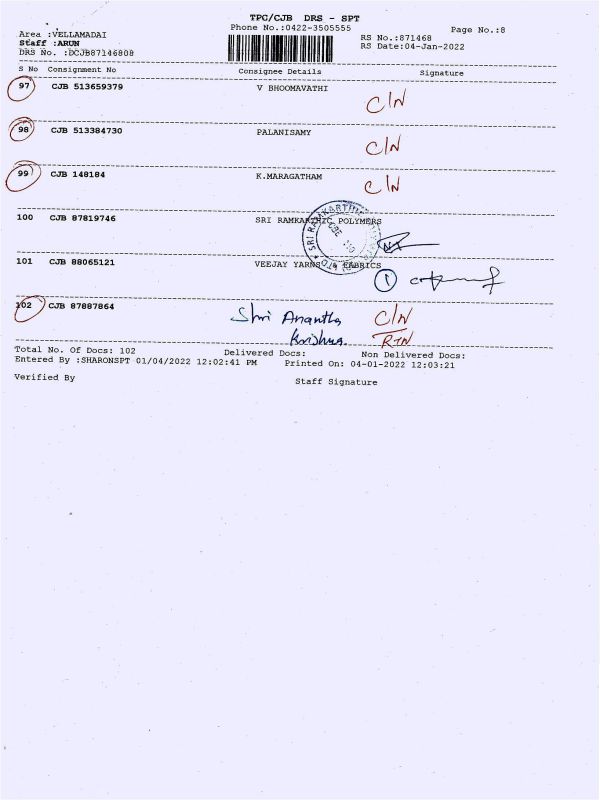 TPC/CJB DRS - SPT
Phone No.:0422-3505555
Page No.:8
Area :VELLAMADAI
Staff :ARUN
DRS No. :DCJB87146808
RS No.:871468
RS Date:04-Jan-2022
S No Consignment No Consignee Details Signature
97 CJB 513659379 V BHOOMAVATHI
C/N
98 CJB 513384730 PALANISAMY
C/N
99 CJB 148184 K.MARAGATHAM
C/N
100 CJB 87819746 SRI RAMKARTHIC POLYMERS
101 CJB 88065121 VEEJAY YARNS & FABRICS
1
102 CJB 87887864 Shri Anantha C/N
Krishna. RTN
Total No. Of Docs: 102 Delivered Docs: Non Delivered Docs:
Entered By :SHARONSPT 01/04/2022 12:02:41 PM Printed On: 04-01-2022 12:03:21
Verified By Staff Signature